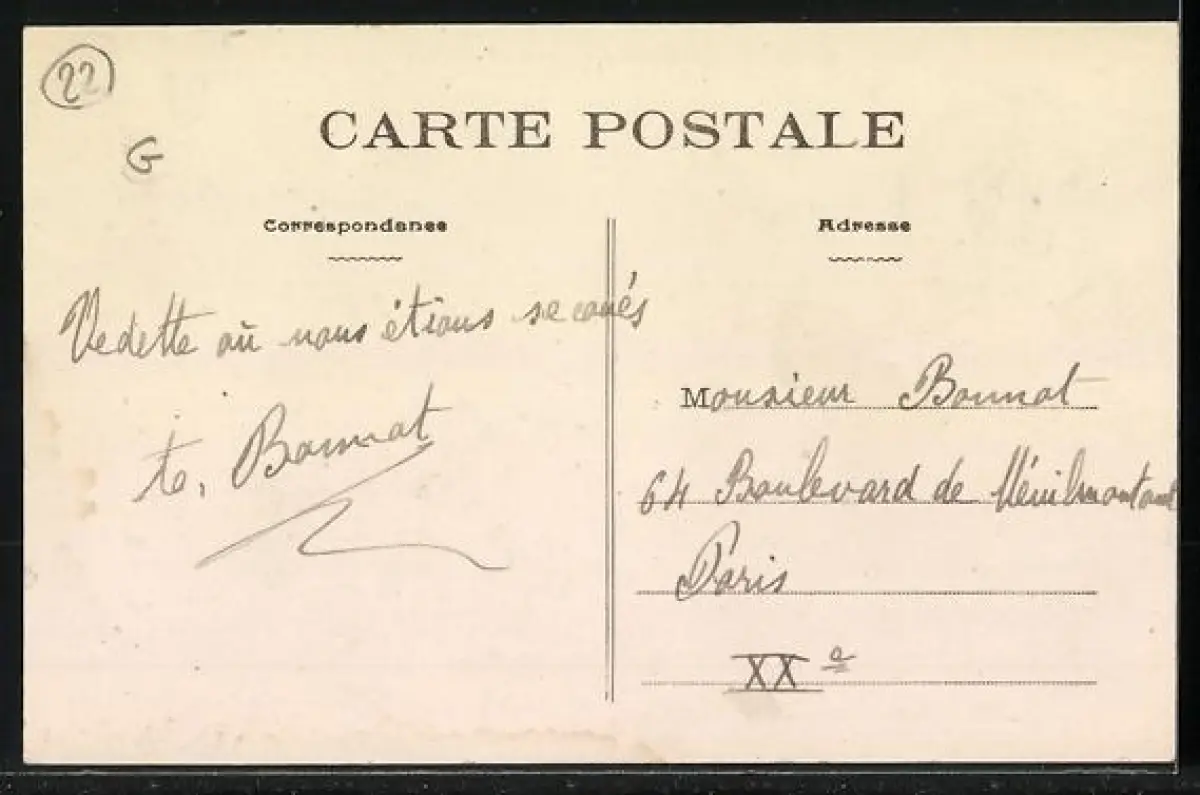 22
G
CARTE POSTALE
Correspondance
Adresse
Vedette où nous étions secoués
Bonnat
Monsieur Bonnat
64 Boulevard de Ménilmontant
Paris
XXe